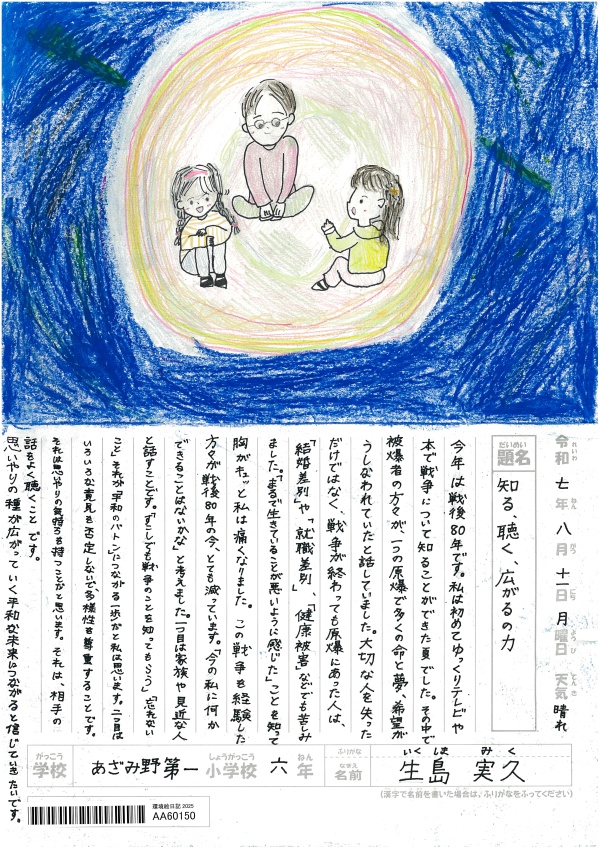 令和 七 年 八 月 十一 日 月 曜日 天気 晴れ
れいわ ねん がつ にち ようび てんき
だいめい
題名 知る、聴く、広がるの力
今年は戦後80年です。私は初めてゆっくりテレビや
本で戦争について知ることができた夏でした。その中で
被爆者の方々が、一つの原爆で多くの命と夢、希望が
うしなわれていたと話していました。大切な人を失った
だけではなく、戦争が終わっても原爆にあった人は、
「結婚差別」や「就職差別」、「健康被害」などでも苦しみ
ました。「まるで生きていることが悪いように感じた」ことを知って
胸がキュッと私は痛くなりました。この戦争を経験した
方々が戦後80年の今、とても減っています。「今の私に何か
できることはないかな」と考えました。一つ目は家族や身近な人
と話すことです。「すこしでも戦争のことを知ってもらう」「忘れない
こと」それが「平和のバトン」につながる一歩かと私は思います。二つ目は
いろいろな意見も否定しないで、多様性を尊重することです。
それは思いやりの気持ちを持つことかと思います。それは、相手の
話をよく聴くことです。
思いやりの種が広がっていく平和な未来につながると信じていきたいです。
がっこう しょうがっこう ねん
学校 あざみ野第一 小学校 六 年
ふりがな いくしま みく
なまえ
名前 生島 実久
(漢字で名前を書いた場合は、ふりがなをふってください)
環境絵日記 2025
AA60150